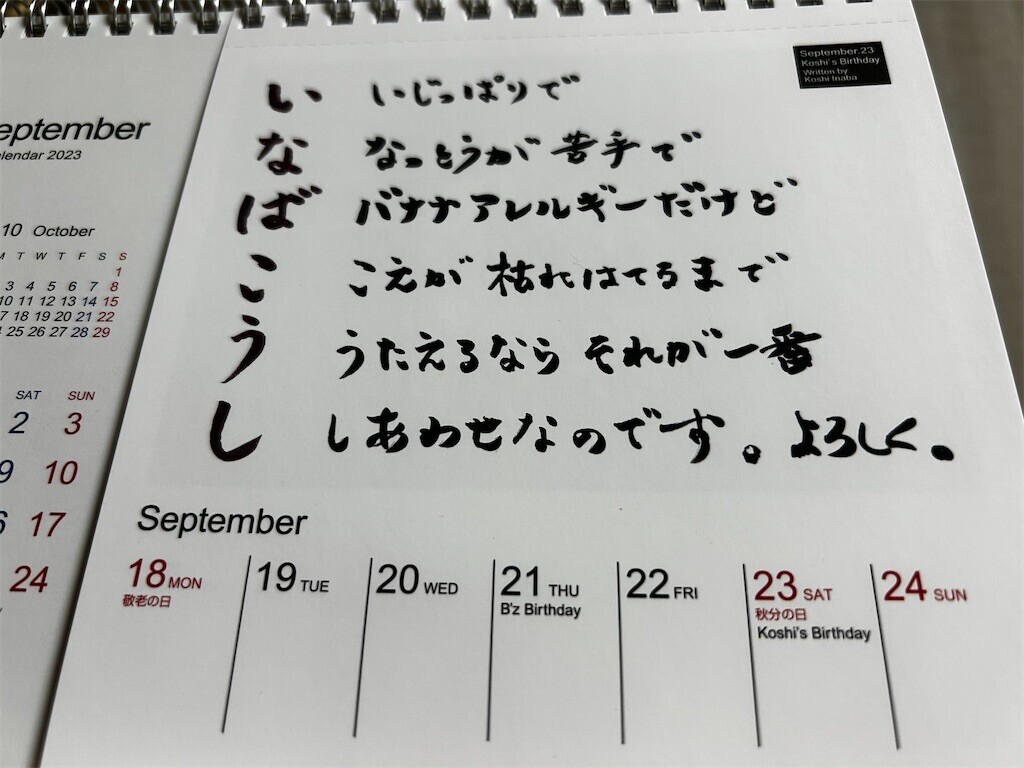 September.23
Koshi's Birthday
Written by
Koshi Inaba
い いじっぱりで
な なっとうが 苦手で
ば バナナアレルギーだけど
こ こえが 枯れはてるまで
う うたえるなら それが一番
し しあわせなのです。よろしく。
September
18 MON 19 TUE 20 WED 21 THU 22 FRI 23 SAT 24 SUN
敬老の日 B'z Birthday 秋分の日
Koshi's Birthday
eptember
alendar 2023
10 October
M T W T F S S
1
3 4 5 6 7 8
10 11 12 13 14 15
17 18 19 20 21 22
24 25 26 27 28 29
SAT SUN
2 3
9 10
17
24